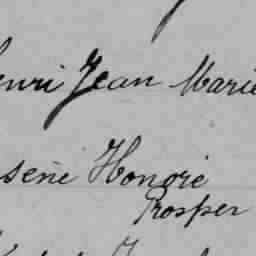 enri Jean Marie
sene Hongré
Prosper